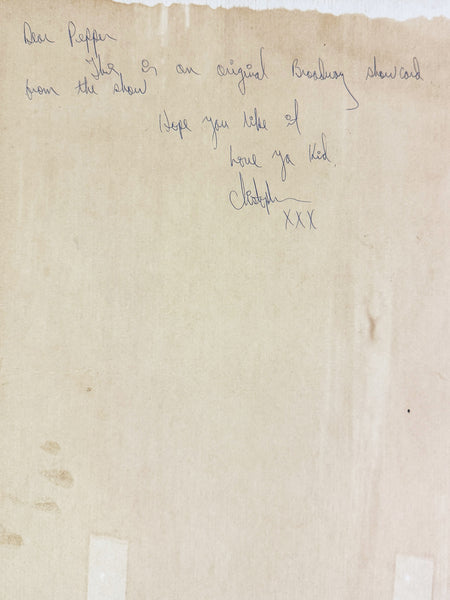 Dear Pepper
This is an original Broadway showcard
from the show
Hope you like it
Love ya Kid.
Christopher
XXX